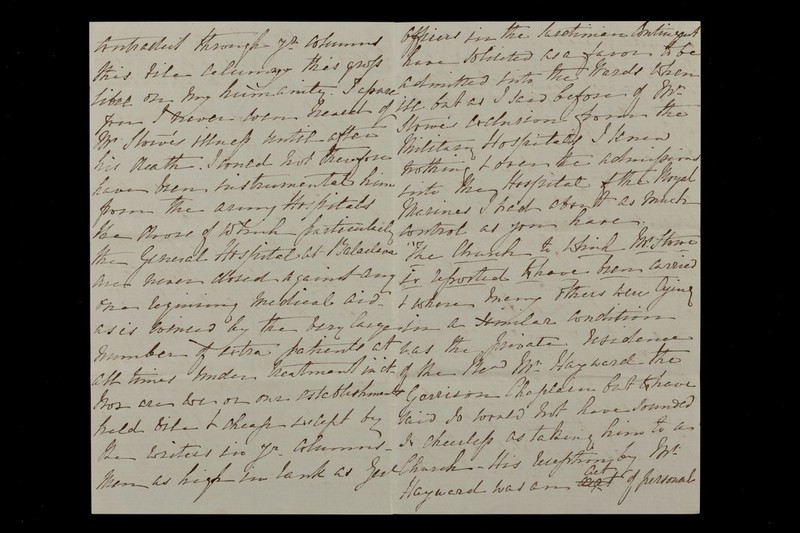 contradict through yr columns
this vile calumny this gross
libel on my humanity. I assure
you I never even heard of
Mr Stowe's illness until after
his death. I could not therefore
have been instrumental him
from the army Hospitals
the doors of which particularly
the General Hospital at Balaclava
are never closed against any
one requiring medical aid
as is proved by the very large
number of extra patients at
all times under treatment in it
Nor are we or our establishments
held vile & cheap except by
the writers in yr columns -
Men as high in rank as Genl
Officers in the Sardinian Contingent
have solicited as a favor to be
admitted into the Wards when
ill but as I said before of Mr
Stowe's exclusion from the
Military Hospitals I knew
nothing & over the admissions
into the Hospital of the Royal
Marines I had about as much
control as you have.
"The Church to which Mr Stowe
is reported to have been carried
& where many others were lying
in a similar condition
was the private residence
of the Revd Mr Hayward the
Garrison Chaplain but to have
said so would not have sounded
so cheerless as taking him to a
Church - His reception by Mr
Hayward was an act of personal